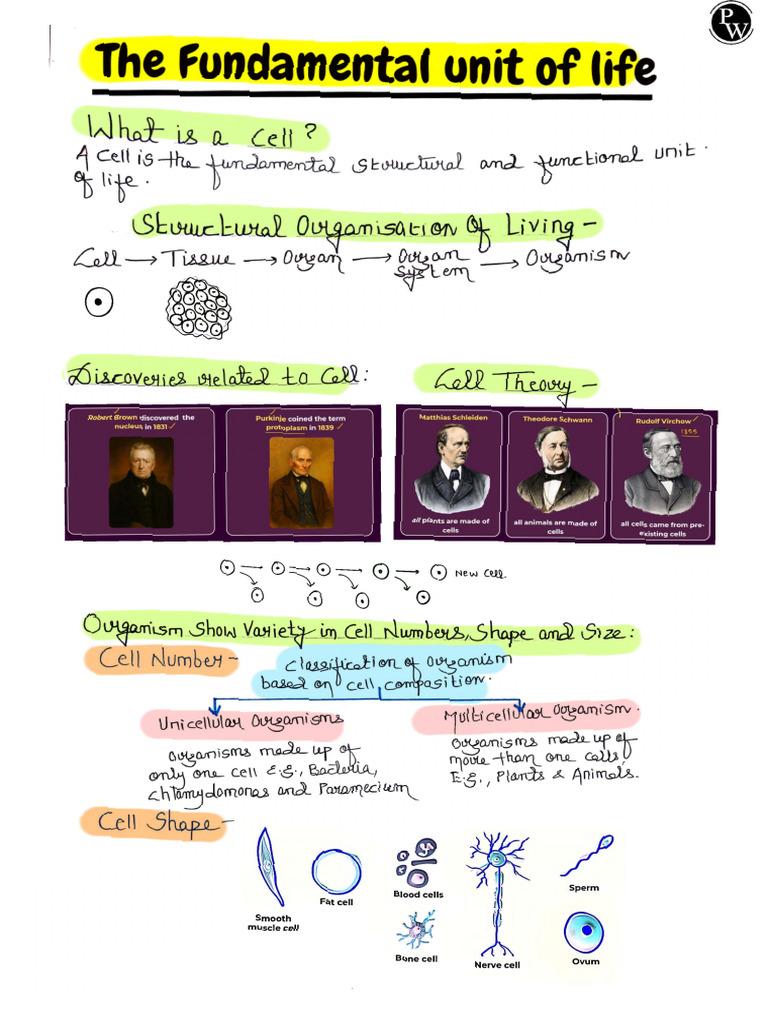 P
W
The Fundamental unit of life
What is a Cell?
A Cell is the fundamental structural and functional unit
of life.
Structural Organisation Of Living -
Cell → Tissue → Organ → Organ System → Organism
Discoveries related to Cell:
Cell Theory -
Robert Brown discovered the
nucleus in 1831
Purkinje coined the term
protoplasm in 1839
Matthias Schleiden
all plants are made of
cells
Theodore Schwann
all animals are made of
cells
Rudolf Virchow
1855
all cells came from pre-
existing cells
New Cell.
Organism Show Variety in Cell Numbers, Shape and Size:
Cell Number -
Classification of Organism
based on cell composition.
Unicellular Organisms
Organisms made up of
only one cell E.g., Bacteria,
Chlamydomonas and Paramecium
Multicellular Organism.
Organisms made up of
more than one cells,
E.g., Plants & Animals.
Cell Shape -
Smooth
muscle cell
Fat cell
Blood cells
Bone cell
Nerve cell
Sperm
Ovum